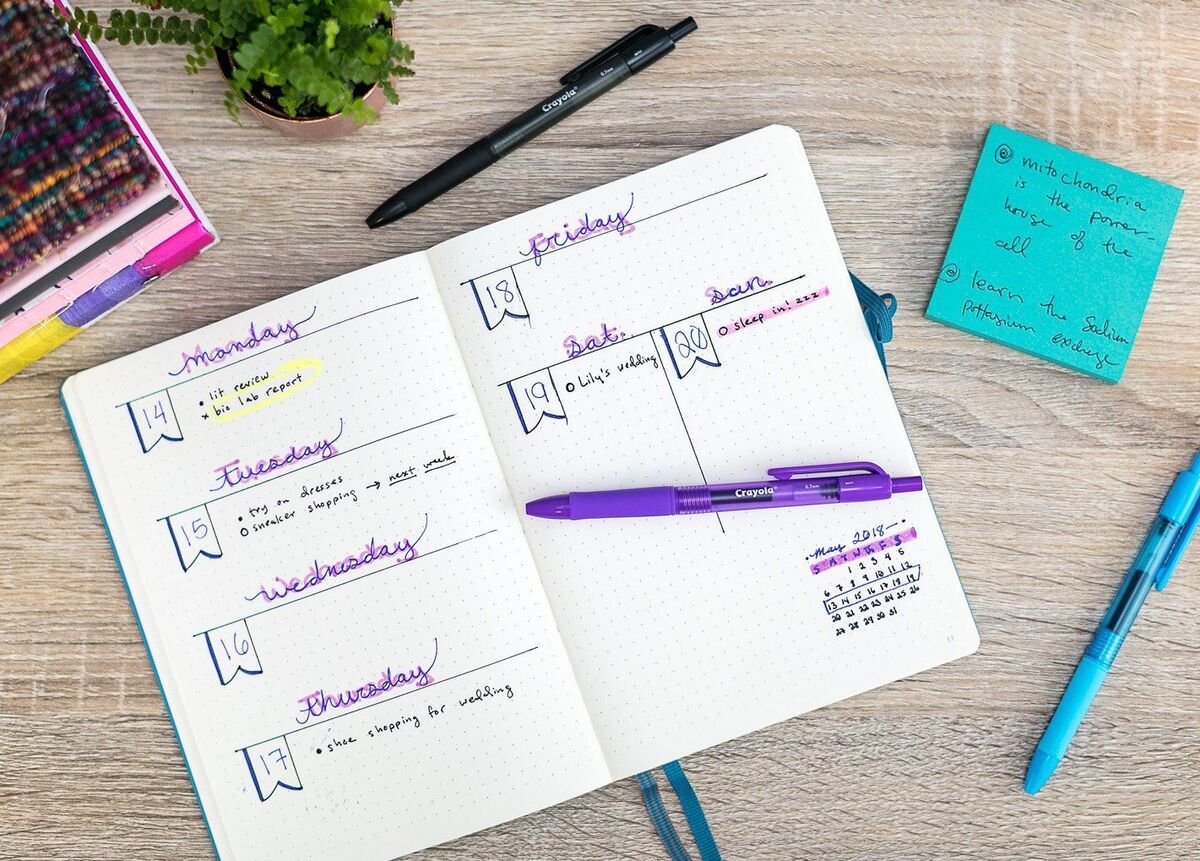 Crayola
0.7mm
monday
14
• lit review
x bio lab report
Tuesday
15
• try on dresses
o sneaker shopping → next week
Wednesday
16
thursday
17
• shoe shopping for wedding
friday
18
sat.
19
o Lily's wedding
sun.
20
o sleep in! zzz
Crayola
0.7mm
May 2018
S M T W Th F S
1 2 3 4 5
6 7 8 9 10 11 12
13 14 15 16 17 18 19
20 21 22 23 24 25 26
27 28 29 30 31
mitochondria
is the power-
house of the
cell
learn the Sodium
pottasium